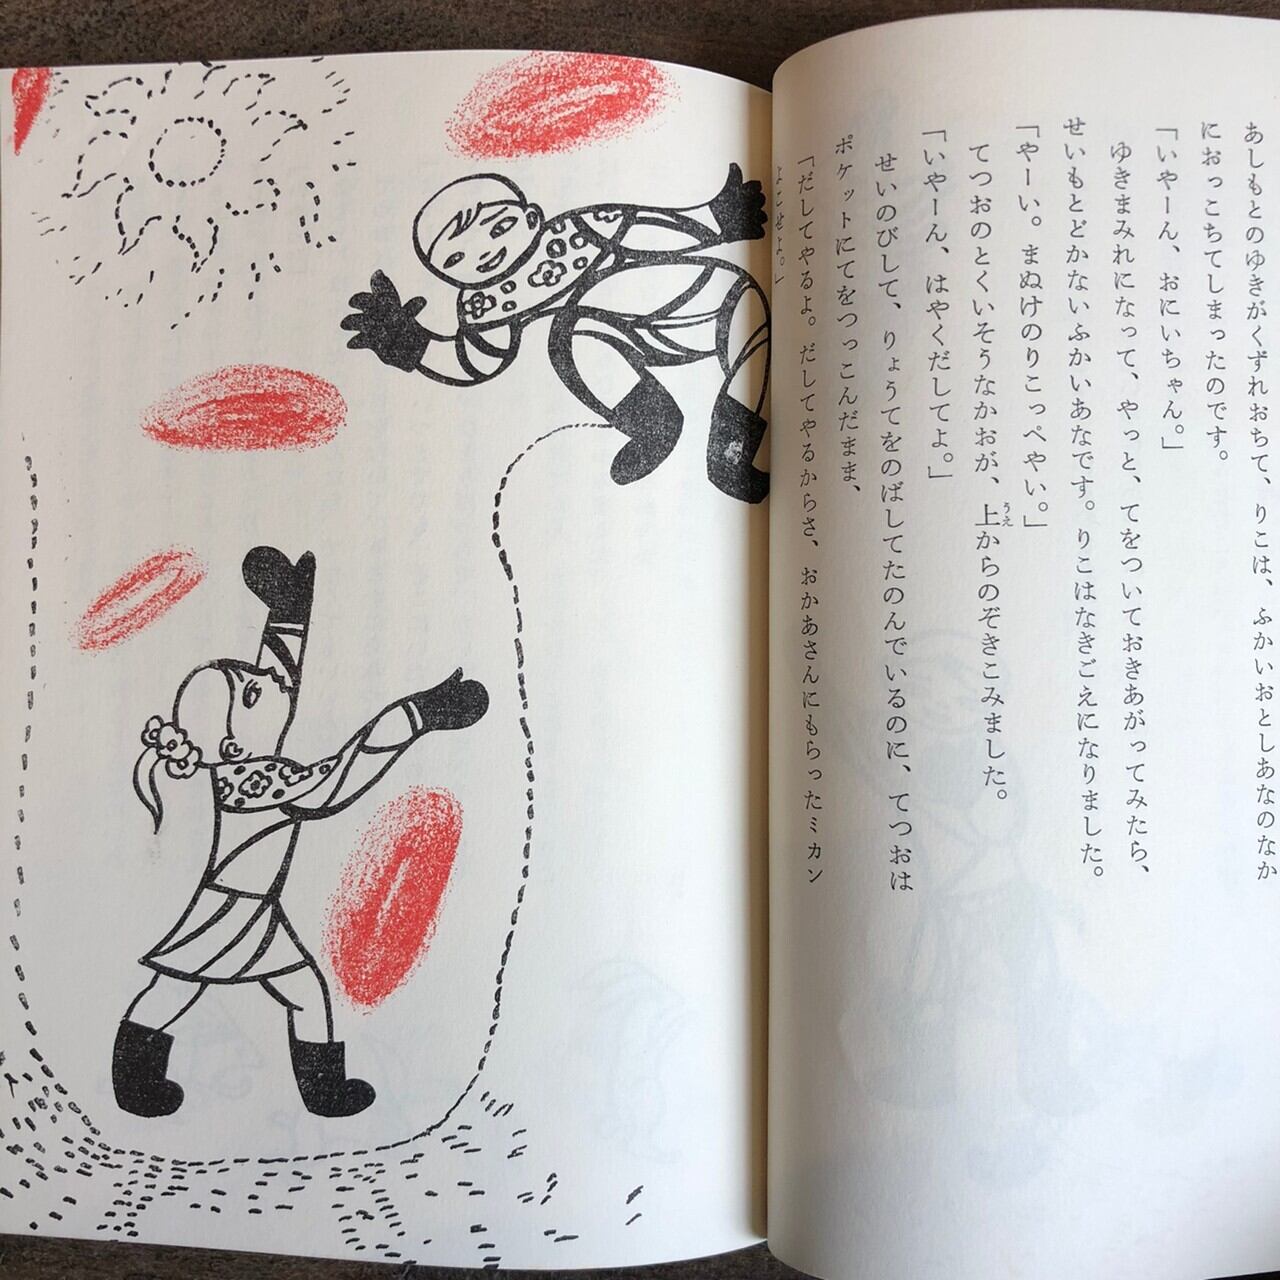 あしもとのゆきがくずれおちて、りこは、ふかいおとしあなのなか
におっこちてしまったのです。
「いやーん、おにいちゃん。」
ゆきまみれになって、やっと、てをついておきあがってみたら、
せいもとどかないふかいあなです。りこはなきごえになりました。
「やーい。まぬけのりこっぺやい。」
てつおのとくいそうなかおが、上からのぞきこみました。
うえ
「いやーん、はやくだしてよ。」
せいのびして、りょうてをのばしてたのんでいるのに、てつおは
ポケットにてをつっこんだまま、
「だしてやるよ。だしてやるからさ、おかあさんにもらったミカン
よこせよ。」